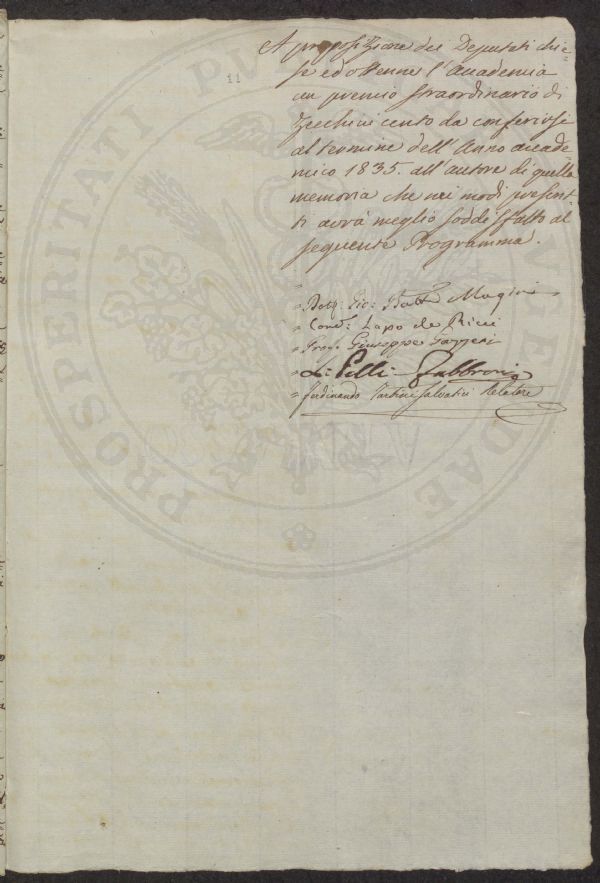 A proposizione dei Deputati chie=
se ed ottenne l'Accademia
un premio straordinario di
Zecchini cento da conferirsi
al termine dell'Anno accade
mico 1835. all'autore di quella
memoria che nei modi prescrit
ti avrà meglio soddisfatto al
seguente Programma.
11
= Dott: Gio: Batt: Magini
= Cons: Lapo de Ricci
= Prof. Giuseppe Gazzeri
= Pelli-Fabbroni
= Ferdinando Tartini Salvatici Relatore
PROSPERITATI PUBLICAE AUGENDAE